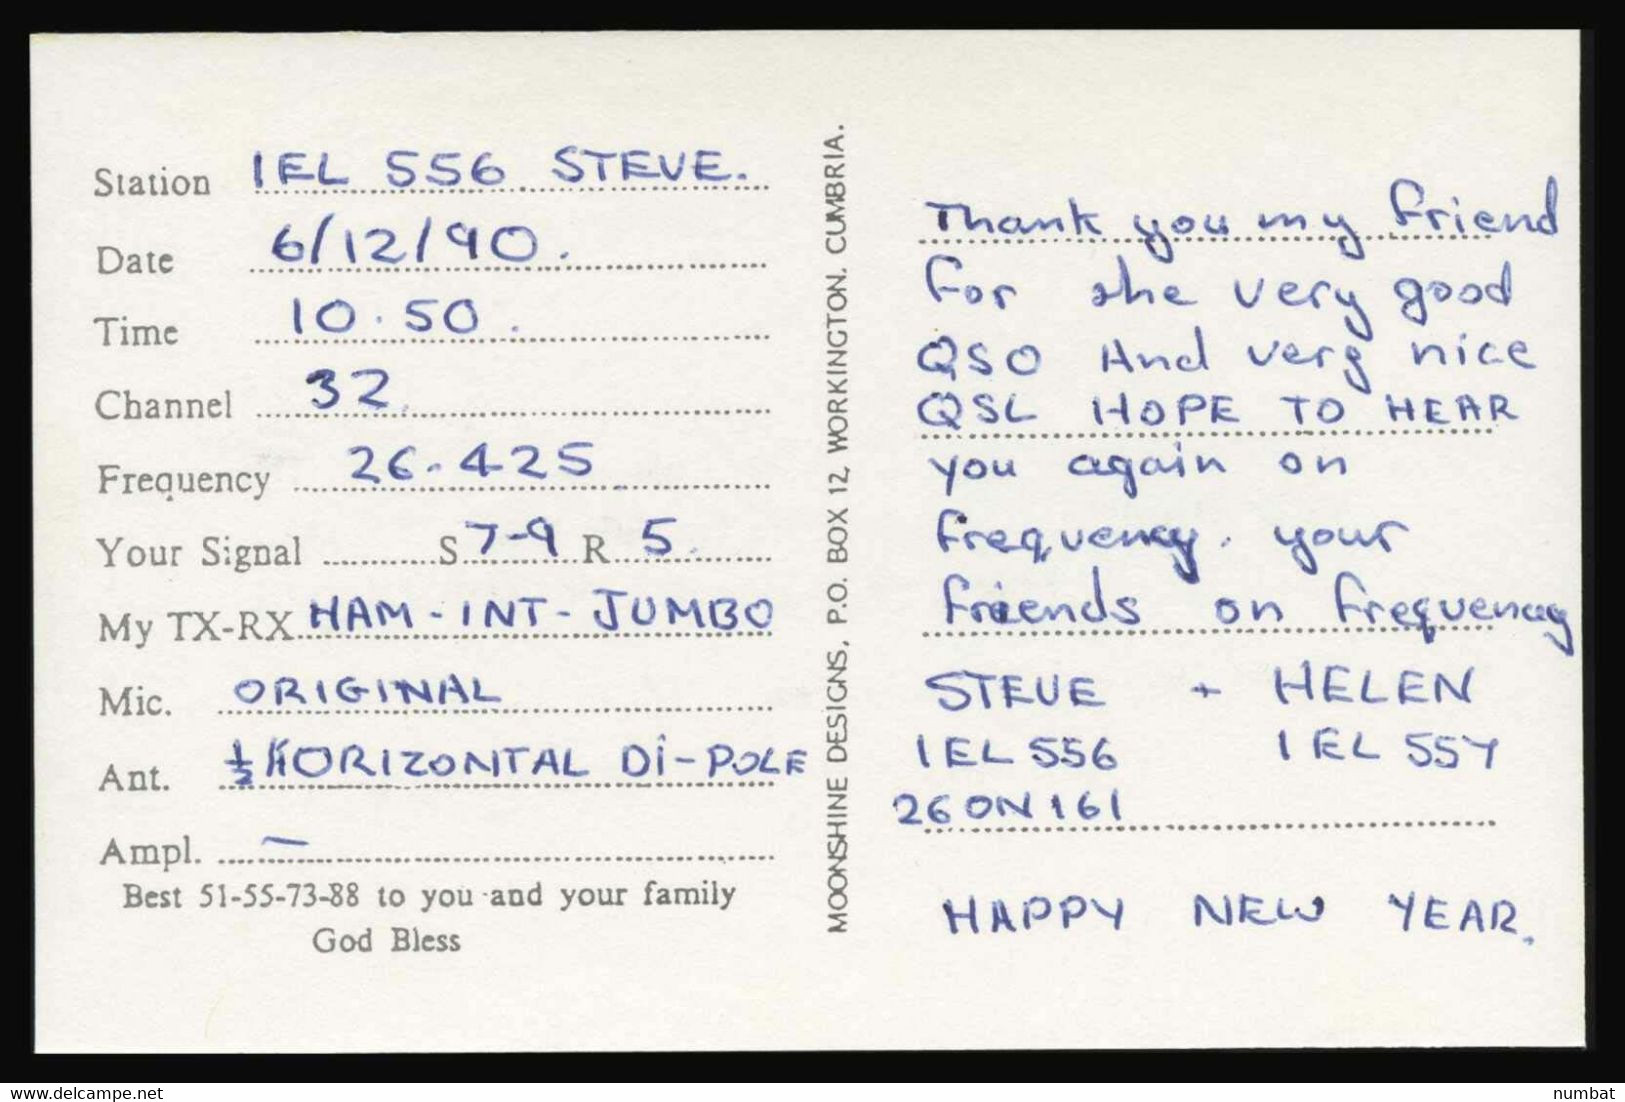 Station IEL 556 STEVE.
Date 6/12/90.
Time 10.50.
Channel 32.
Frequency 26.425
Your Signal S 7-9 R 5.
My TX-RX HAM-INT-JUMBO
Mic. ORIGINAL
Ant. ½ HORIZONTAL Di-POLE
Ampl. —
Best 51-55-73-88 to you and your family
God Bless
MOONSHINE DESIGNS, P.O. BOX 12, WORKINGTON. CUMBRIA.
Thank you my friend
for the very good
QSO And very nice
QSL HOPE TO HEAR
you again on
frequency. your
friends on frequency
STEVE + HELEN
IEL 556 IEL 557
26 ON 161
HAPPY NEW YEAR.
numbat